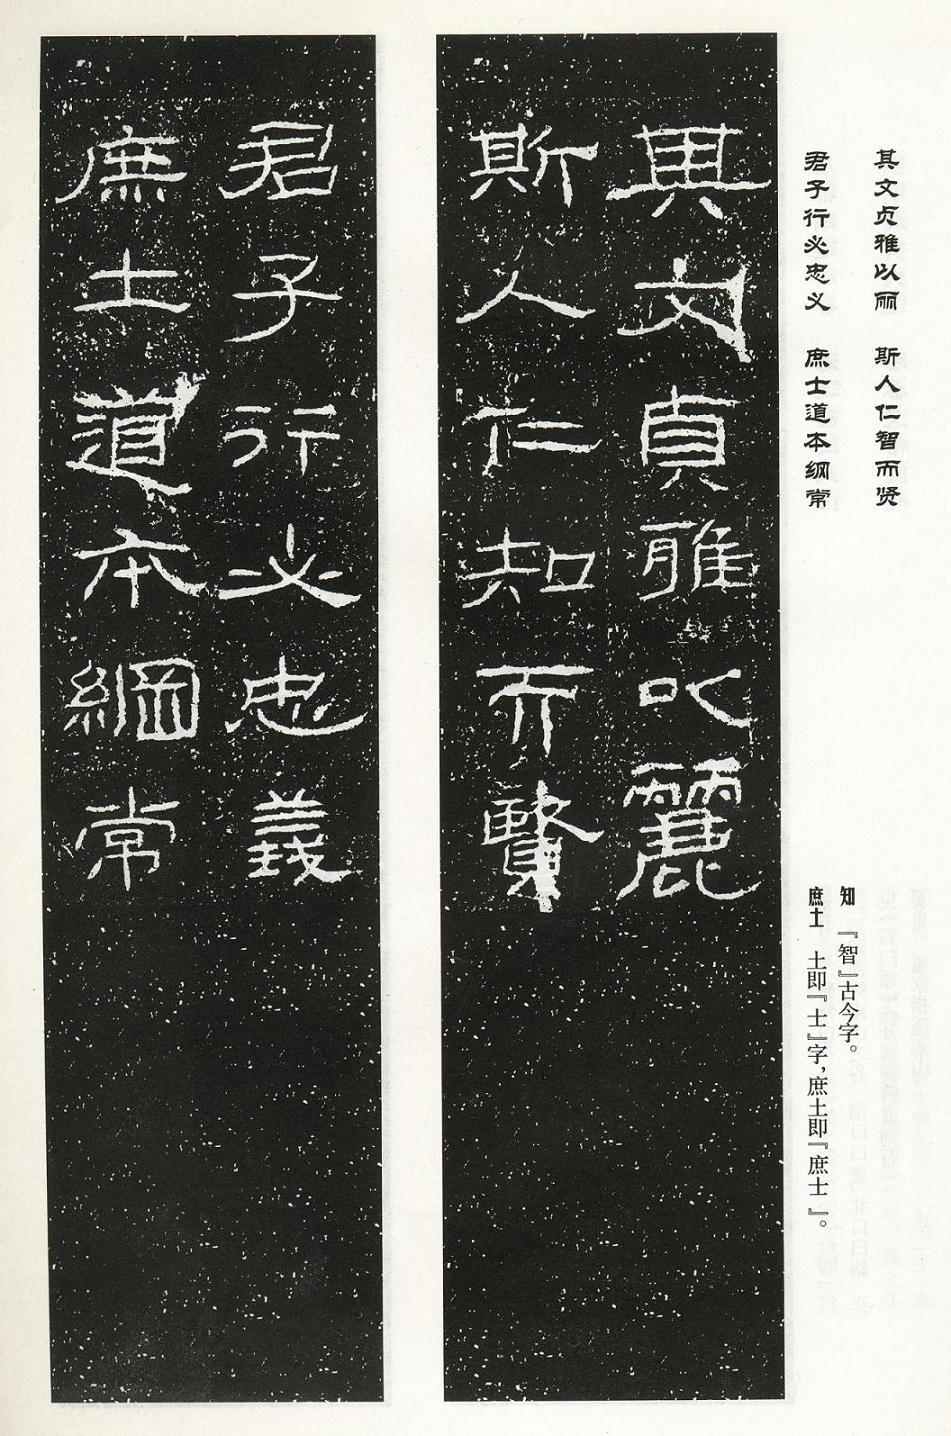 其文贞雅以丽　斯人仁智而贤
君子行必忠义　庶士道本纲常
知　『智』古今字。
庶土　土即『士』字，庶土即『庶士』。
其文貞雅以麗
斯人仁知而賢
君子行必忠義
庶土道本綱常